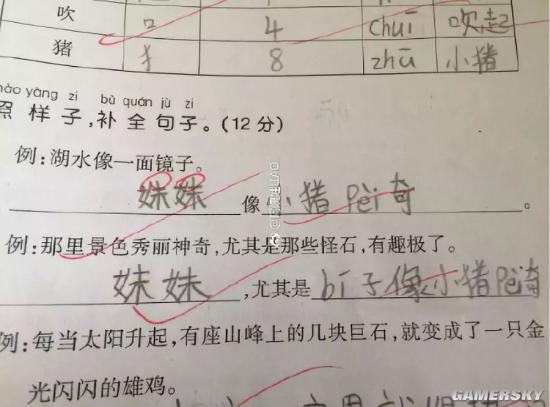 吹 口 4 chuī 吹起
猪 犭 8 zhū 小猪
hào yàng zi bǔ quán jù zi
照样子,补全句子。(12分)
例:湖水像一面镜子。
妹妹像小猪pèi奇。
例:那里景色秀丽神奇,尤其是那些怪石,有趣极了。
妹妹,尤其是bí子像小猪pèi奇
例:每当太阳升起,有座山峰上的几块巨石,就变成了一只金
光闪闪的雄鸡。
GAMERSKY